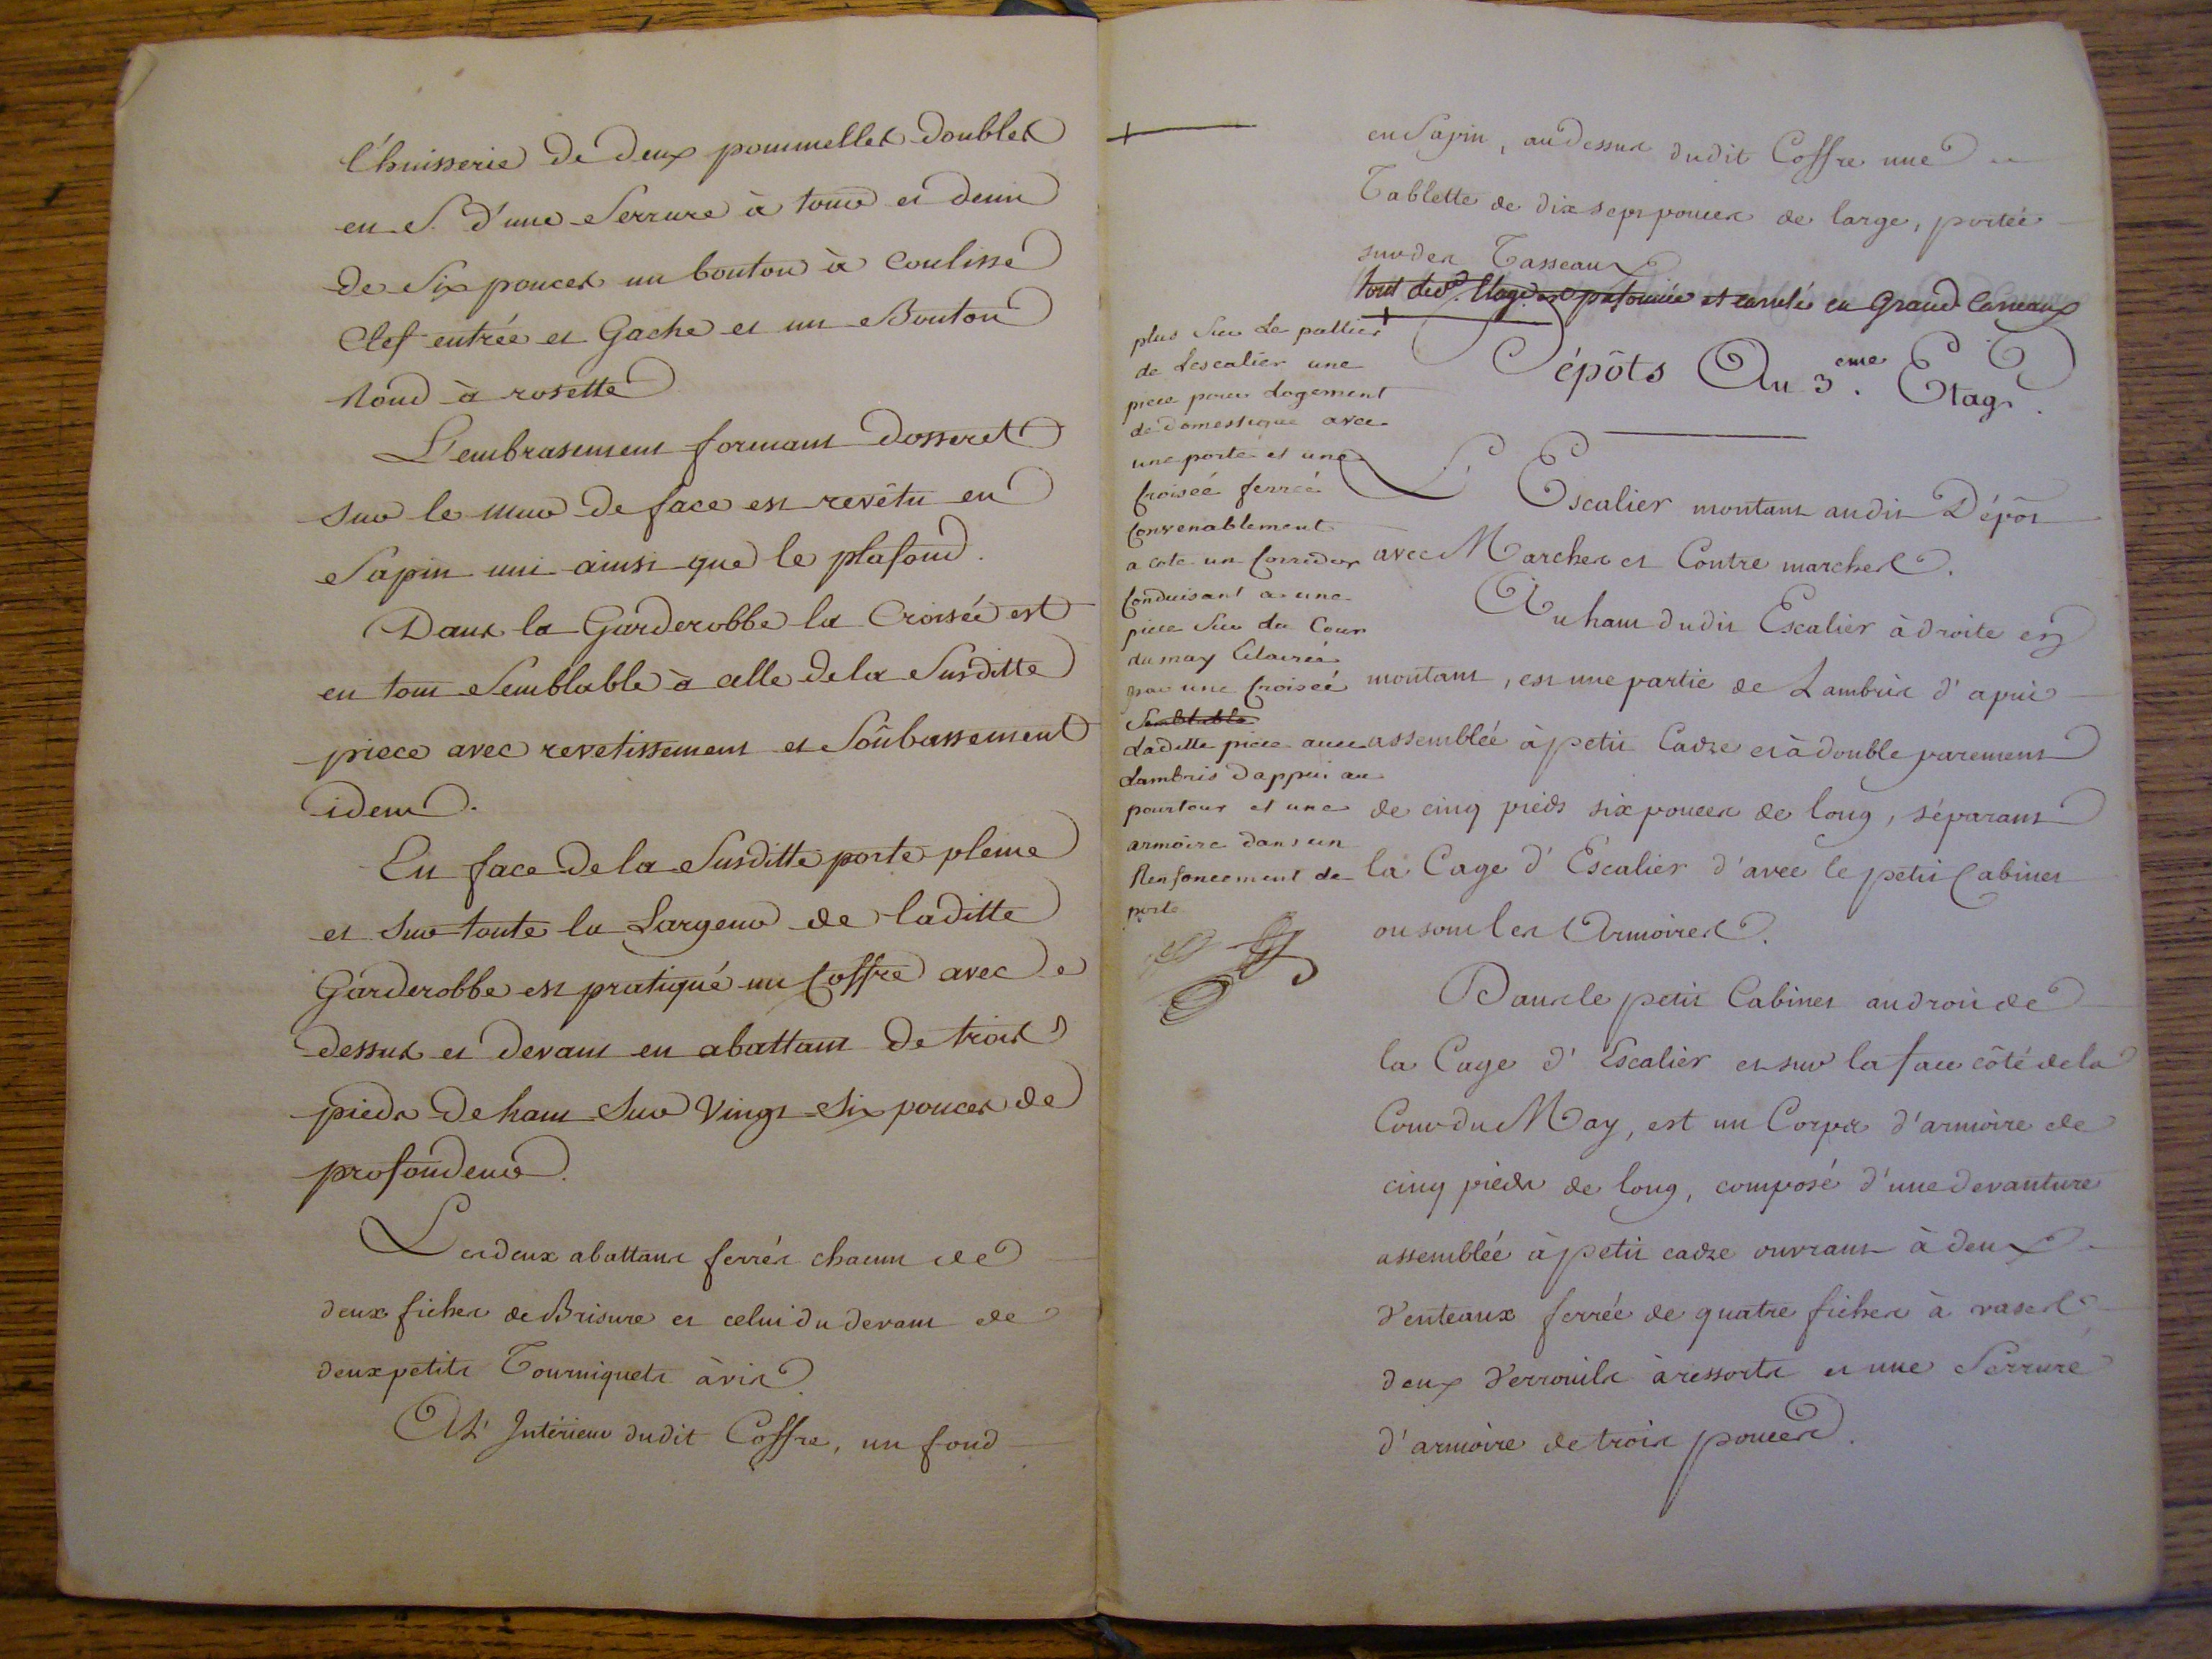 l'huisserie de deux pommelles doubles
en S. d'une Serrure à tour et demi
de Six pouces un bouton à Coulisse
Clef entrée et Gache et un Bouton
Rond à rosette
L'embrasement formant Dosseret
sur le mur de face est revêtu en
Sapin uni ainsi que le plafond.
Dans la Garderobbe la Croisée est
en tout Semblable à celle de la Susditte
piece avec revetissement et Soûbassement
idem.
En face de la Susditte porte pleine
et sur toute la Largeur de laditte
Garderobbe est pratiqué un Coffre avec
dessus et devant en abattant de trois
pieds de haut sur Vingt Six pouces de
profondeur.
Les deux abattans ferrés chacun de
deux fiches de Brisure et celui du devant de
deux petits Tourniquets à vis.
A L'Intérieur dudit Coffre, un fond
en Sapin, au dessus dudit Coffre une
Tablette de dix sept pouces de large, portée
sur des Tasseaux
tout led. Etage est plafonnée et carrelé en Grand Carreaux
Dépôts Au 3.eme Etage.
L'Escalier montant audit Dépôt
avec Marches et Contre marches.
Au haut dudit Escalier à droite en
montant, est une partie de Lambris d'apui
assemblée à petit Cadre et à double parement
de cinq pieds six pouces de long, séparant
la Cage d'Escalier d'avec le petit Cabinet
ou sont les Armoires.
Dans le petit Cabinet au droit de
la Cage d'Escalier et sur la face côté de la
Cour du May, est un Corps d'armoire de
cinq pieds de long, composé d'une devanture
assemblée à petit cadre ouvrant à deux
Venteaux ferrée de quatre fiches à vases
deux Verrouils à ressorts et une Serrure
d'armoire de trois pouces.
plus Sur Le pallier
de Lescalier une
piece pour Logement
de domestique avec
une porte et une
Croisée ferrée
Convenablement
a coté un Corridor
Conduisant a une
piece Sur la Cour
du may Eclairée
par une Croisée
Semblable
Laditte piece avec
Lambris dappui au
pourtour et une
armoire dans un
Renfoncement de
porte